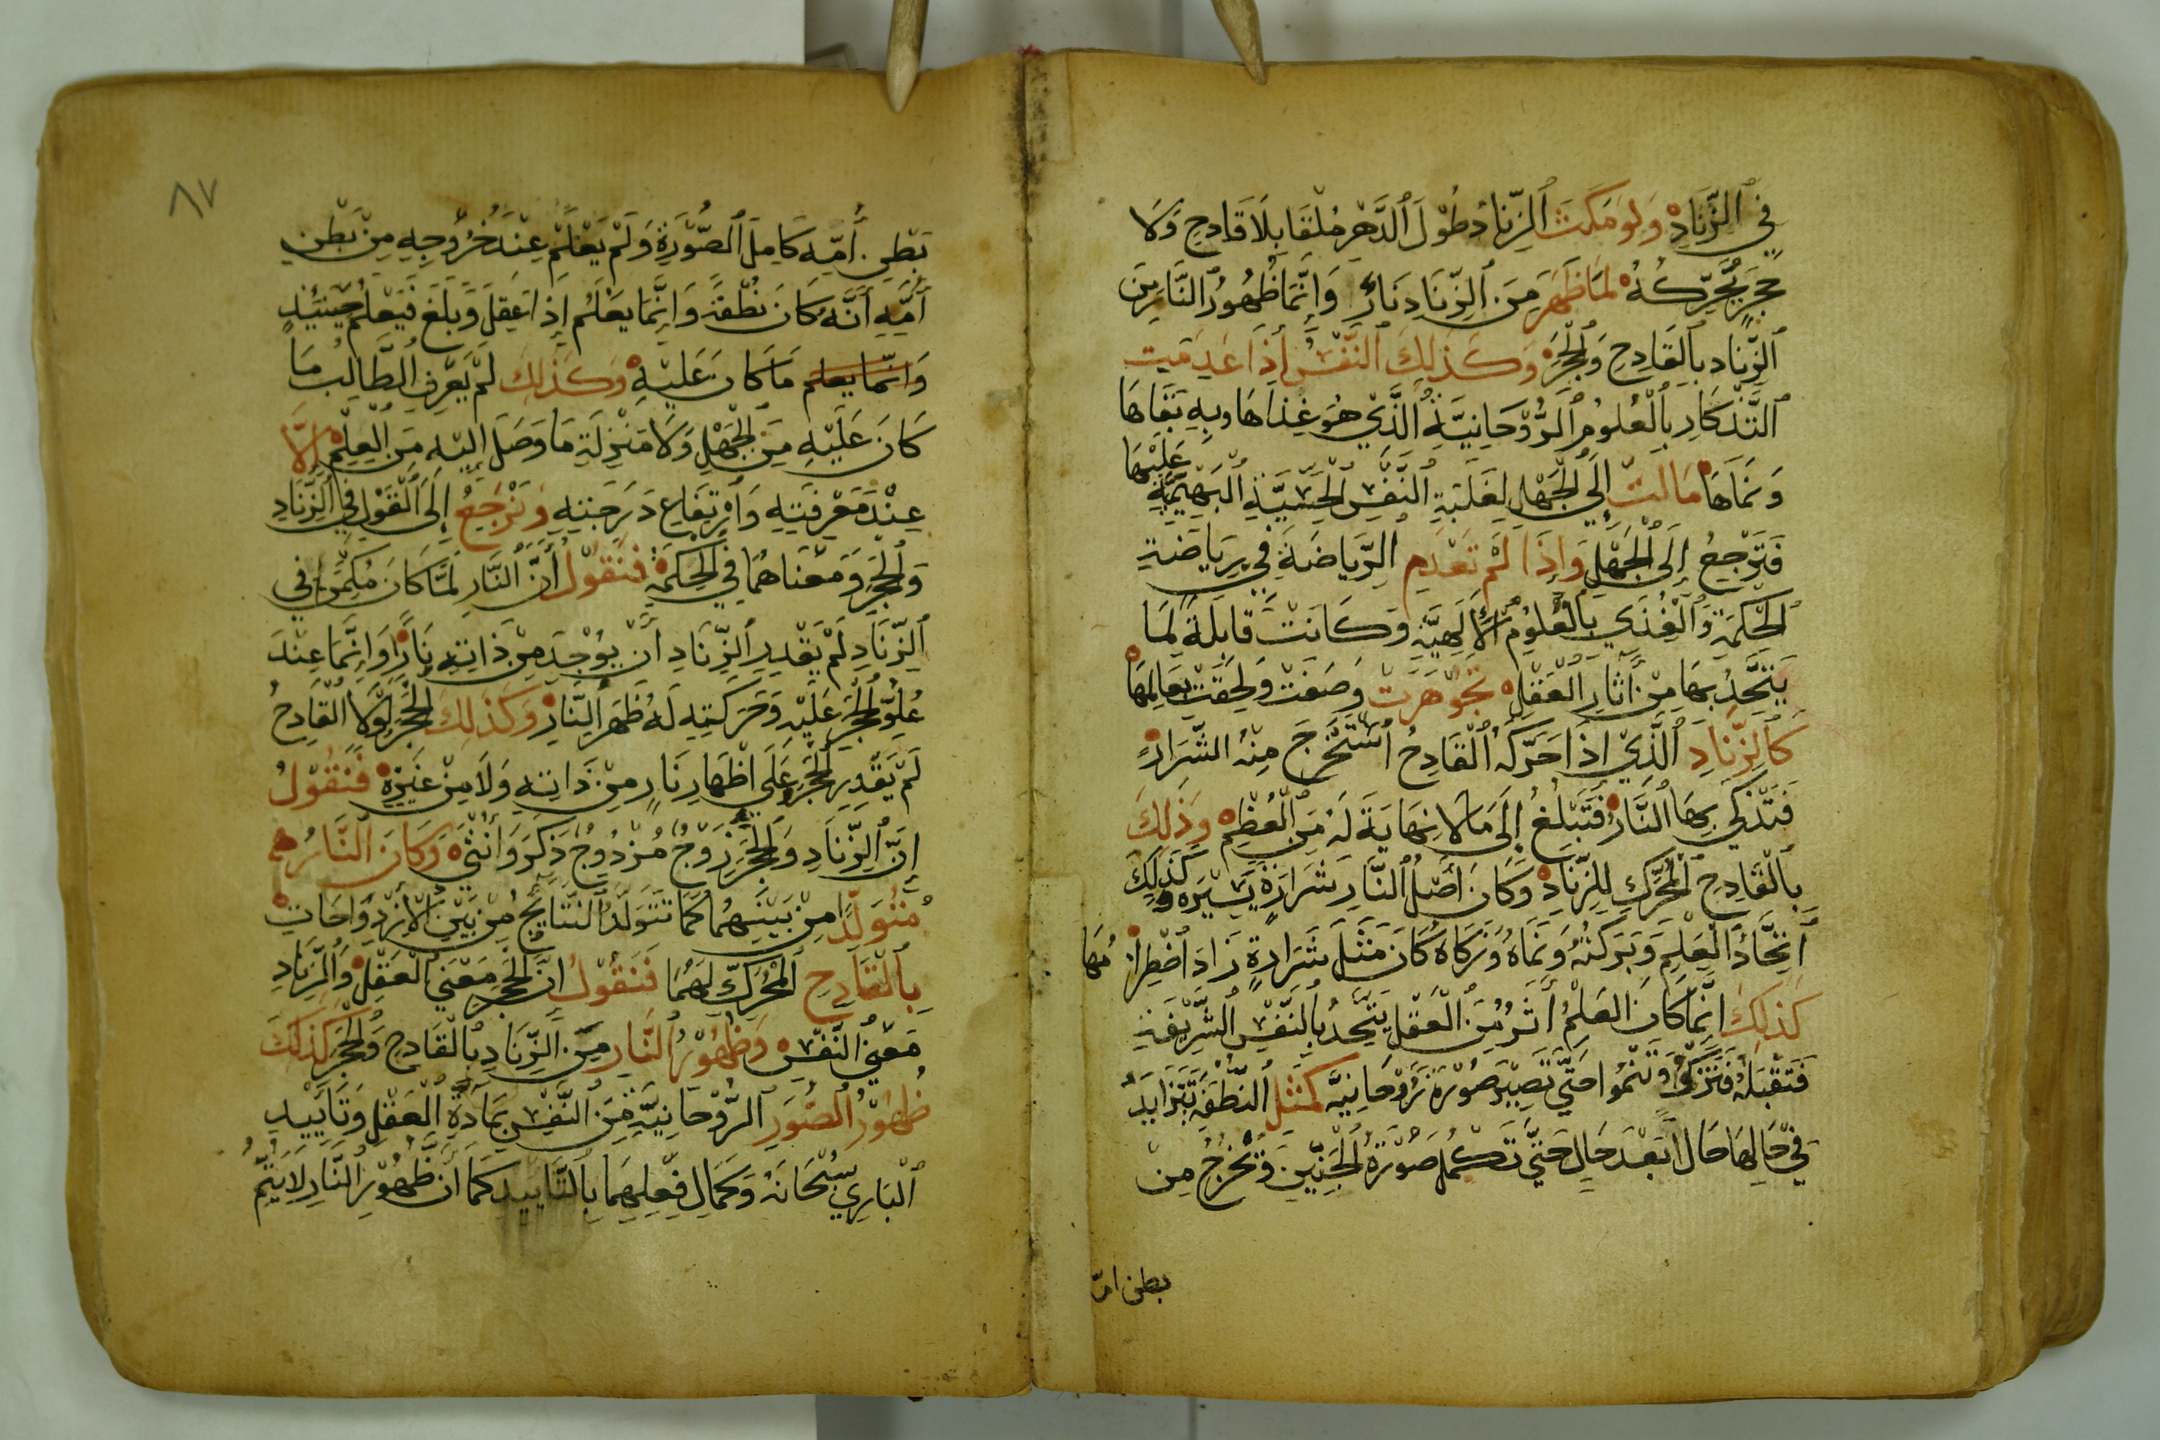 في الزِّنَادِ وَلَو مَكَثَ الزِّنَادُ طُوْلَ الدَّهْرِ مُلْقًا بِلَا قَادِحٍ وَلَا
حَجَرٍ يُحَرِّكُهُ لَمَا ظَهَرَ مِنَ الزِّنَادِ نَارٌ وَاِنَّمَا ظُهُورُ النَّارِ مِنَ
الزِّنَادِ بِالقَادِحِ وَالْحَجَرِ وَكَذلِكَ النَّفْسُ اِذَا عَدِمَت
التَّذكَارِ بِالْعُلُومِ الرُّوْحَانِيَّةِ الَّذِيْ هُوَ غِذَاهَا وبِهِ بَقَاهَا
وَنَمَاهَا مَالَتْ إِلَى الْجَهْلِ لِغَلَبَةِ النَّفْسِ الْحِسِّيَّةِ الْبَهِيْمِيَّةِ عَلَيْهَا
فَتَرْجِعُ إِلَى الْجَهْلِ وَاِذَا لَمْ تَعْدَمِ الرِّيَاضَةَ فِي رِيَاضَةِ
الْحِكْمَةِ وَالْغُذِي بِالْعُلُوْمِ الْاِلَهِيَّةِ وَكَانَتْ قَابِلَةً لِمَا
يَتَّحِدُ بِهَا مِنْ أَثَارِ الْعَقْلِ تَجَوْهَرَتْ وصَفَتْ وَلَحِقَتْ بِعَالَمِهَا
كَالزِّنَادِ الَّذِيْ اِذَا حَرَّكَهُ الْقَادِحُ اسْتَخْرَجَ مِنْهُ الشَّرَارَ
فَتَذْكِي بِهَا النَّارُ فَتَبْلُغُ إِلَى مَا لَا نِهَايَةَ لَهُ مِنَ الْعُظْمِ وَذَلِكَ
بِالْقَادِحِ الْمُحَرِّكِ لِلزِّنَادِ وَكَانَ اَصْلُ النَّارِ شَرَارَةٌ يَسِيْرَه وكَذلِكَ
اتِّحَادُ الْعِلْمِ وَبَرَكَتُهُ وَنَمَاهُ وَزَكَاهُ كَانَ مَثَلَ شَرَارَةٍ زَادَ اضْطِرَا مُهَا
كَذَلِكَ اِنَّمَا كَانَ الْعِلْمُ أَثَرٌ مِنَ الْعَقْلِ يَتَّحِدُ بِالنَّفْسِ الشَّرِيْفَةِ
فَتَقْبَلُهُ فَتَزْكُى وَتَنْمُوا حَتَّى تَصِيْرَ صُوْرَةً رُوْحَانِيَّه كَمَثَلِ النُّطْفَةِ تَتَزَايَدُ
فِيْ حَالِهَا حَالًا بَعْدَ حَالٍ حَتَّى تَكْمُلَ صُوْرَةُ الْجَنِيْنِ وَتَخْرُجُ مِنْ
بطن امّ
٨٧
بَطْنِ أُمِّه كَامِلَ الصُّوْرَةِ وَلَمْ يَعْلَمْ عِنْدَ خُرُوجِهِ مِنْ بَطْنِ
أُمِّهِ أَنَّه كَانَ نُطْفَةً وَاِنَّمَا يَعْلَمُ إِذَا عَقِلَ وَبَلَغَ فَيَعْلَمُ حِيْنَئِذٍ
وَانَّمَا يعلم مَا كَانَ عَلَيْهِ وَكَذلِكَ لَمْ يَعْرِفِ الطَّالِبُ مَا
كَانَ عَلَيْهِ مِنَ الْجَهْلِ وَلَا مَنْزِلَةِ مَا وَصَلَ إِلَيْهِ مِنَ الْعِلْمِ اِلَّا
عِنْدَ مَعْرِفَتِهِ وَارْتِفَاعِ دَرَجَتِهِ وَنَرْجِعُ إِلَى الْقَوْلِ فِي الزِّنَادِ
وَالْحَجَرِ وَمَعْنَاهُمَا فِي الْحِكْمَةِ فَنَقُوْلُ أَنَّ النَّارِ لَمَّا كَانَ مُكِمْنًا فِي
الزِّنَادِ لَمْ يَقْدِرِ الزِّنَادِ أَنْ يُوْجِدَ مِنْ ذَاتِهِ نَارًا وَاِنَّمَا عِنْدَ
عُلِوِّ الْحَجَرِ عَلَيْهِ وَحَرَكَتِهِ لَهُ ظَهَرَ النَّارُ وَكَذلِكَ الْحَجَرُ لَوْلَا الْقَادِحُ
لَمْ يَقْدِرِ الْحَجَرِ عَلَى اِظْهَارِ نَارٍ مِنْ ذَاتِهِ وَلَا مِنْ غَيْرِهِ فَنَقُوْلُ
اِنَّ الزِّنَادِ وَالْحَجَرِ زَوْجٌ مُزْدَوِجٌ ذَكَرَ وَأُنْثَى وَكَانَ النَّارُ
مُتَوَلِّدًا مِنْ بَيْنِهِمُا كَمَا تَتَوَلَّدُ النَّتَايِجُ مِنْ بَيْنِ الْاِزْدِوَاجَاتِ
بِالْقَادِحِ الْمُحَرِّكِ لَهُمَا فَنَقُوْلُ اِنَّ الْحَجَرِ مَعْنَى الْعَقْلِ وَالزِّنَادِ
مَعْنَى النَّفْسِ وَظُهُوْرُ النَّارِ مِنَ الزِّنَادِ بِالْقَادِحِ وَالْحَجَرِ كَذلِكَ
ظُهُوْرُ الصُّوَرِ الرُّوْحَانِيَّةِ مِنَ النَّفْسِ بِمَادَّةِ الْعَقْلِ وَتَايِيْدِ
الْبَارِي سُبْحَانَهُ وَكَمَالِ فِعْلِهِمَا بِالتَّايِيْدِ كَمَا اَنَّ ظُهُوْرَ النَّارِ لَا يَتِمُّ